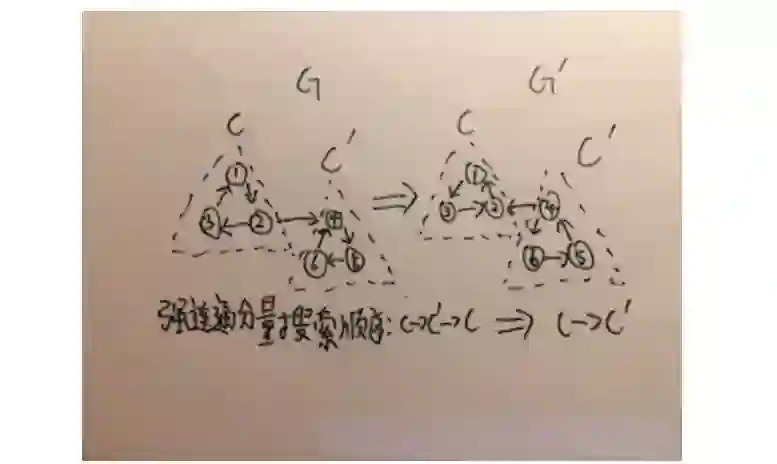 G G'
C C' C C'
① ①
③ ② ④ ③ ② ④
⑥ ⑤ ⑥ ⑤
强连通分量搜索顺序: C→C'→C ⇒ C→C'